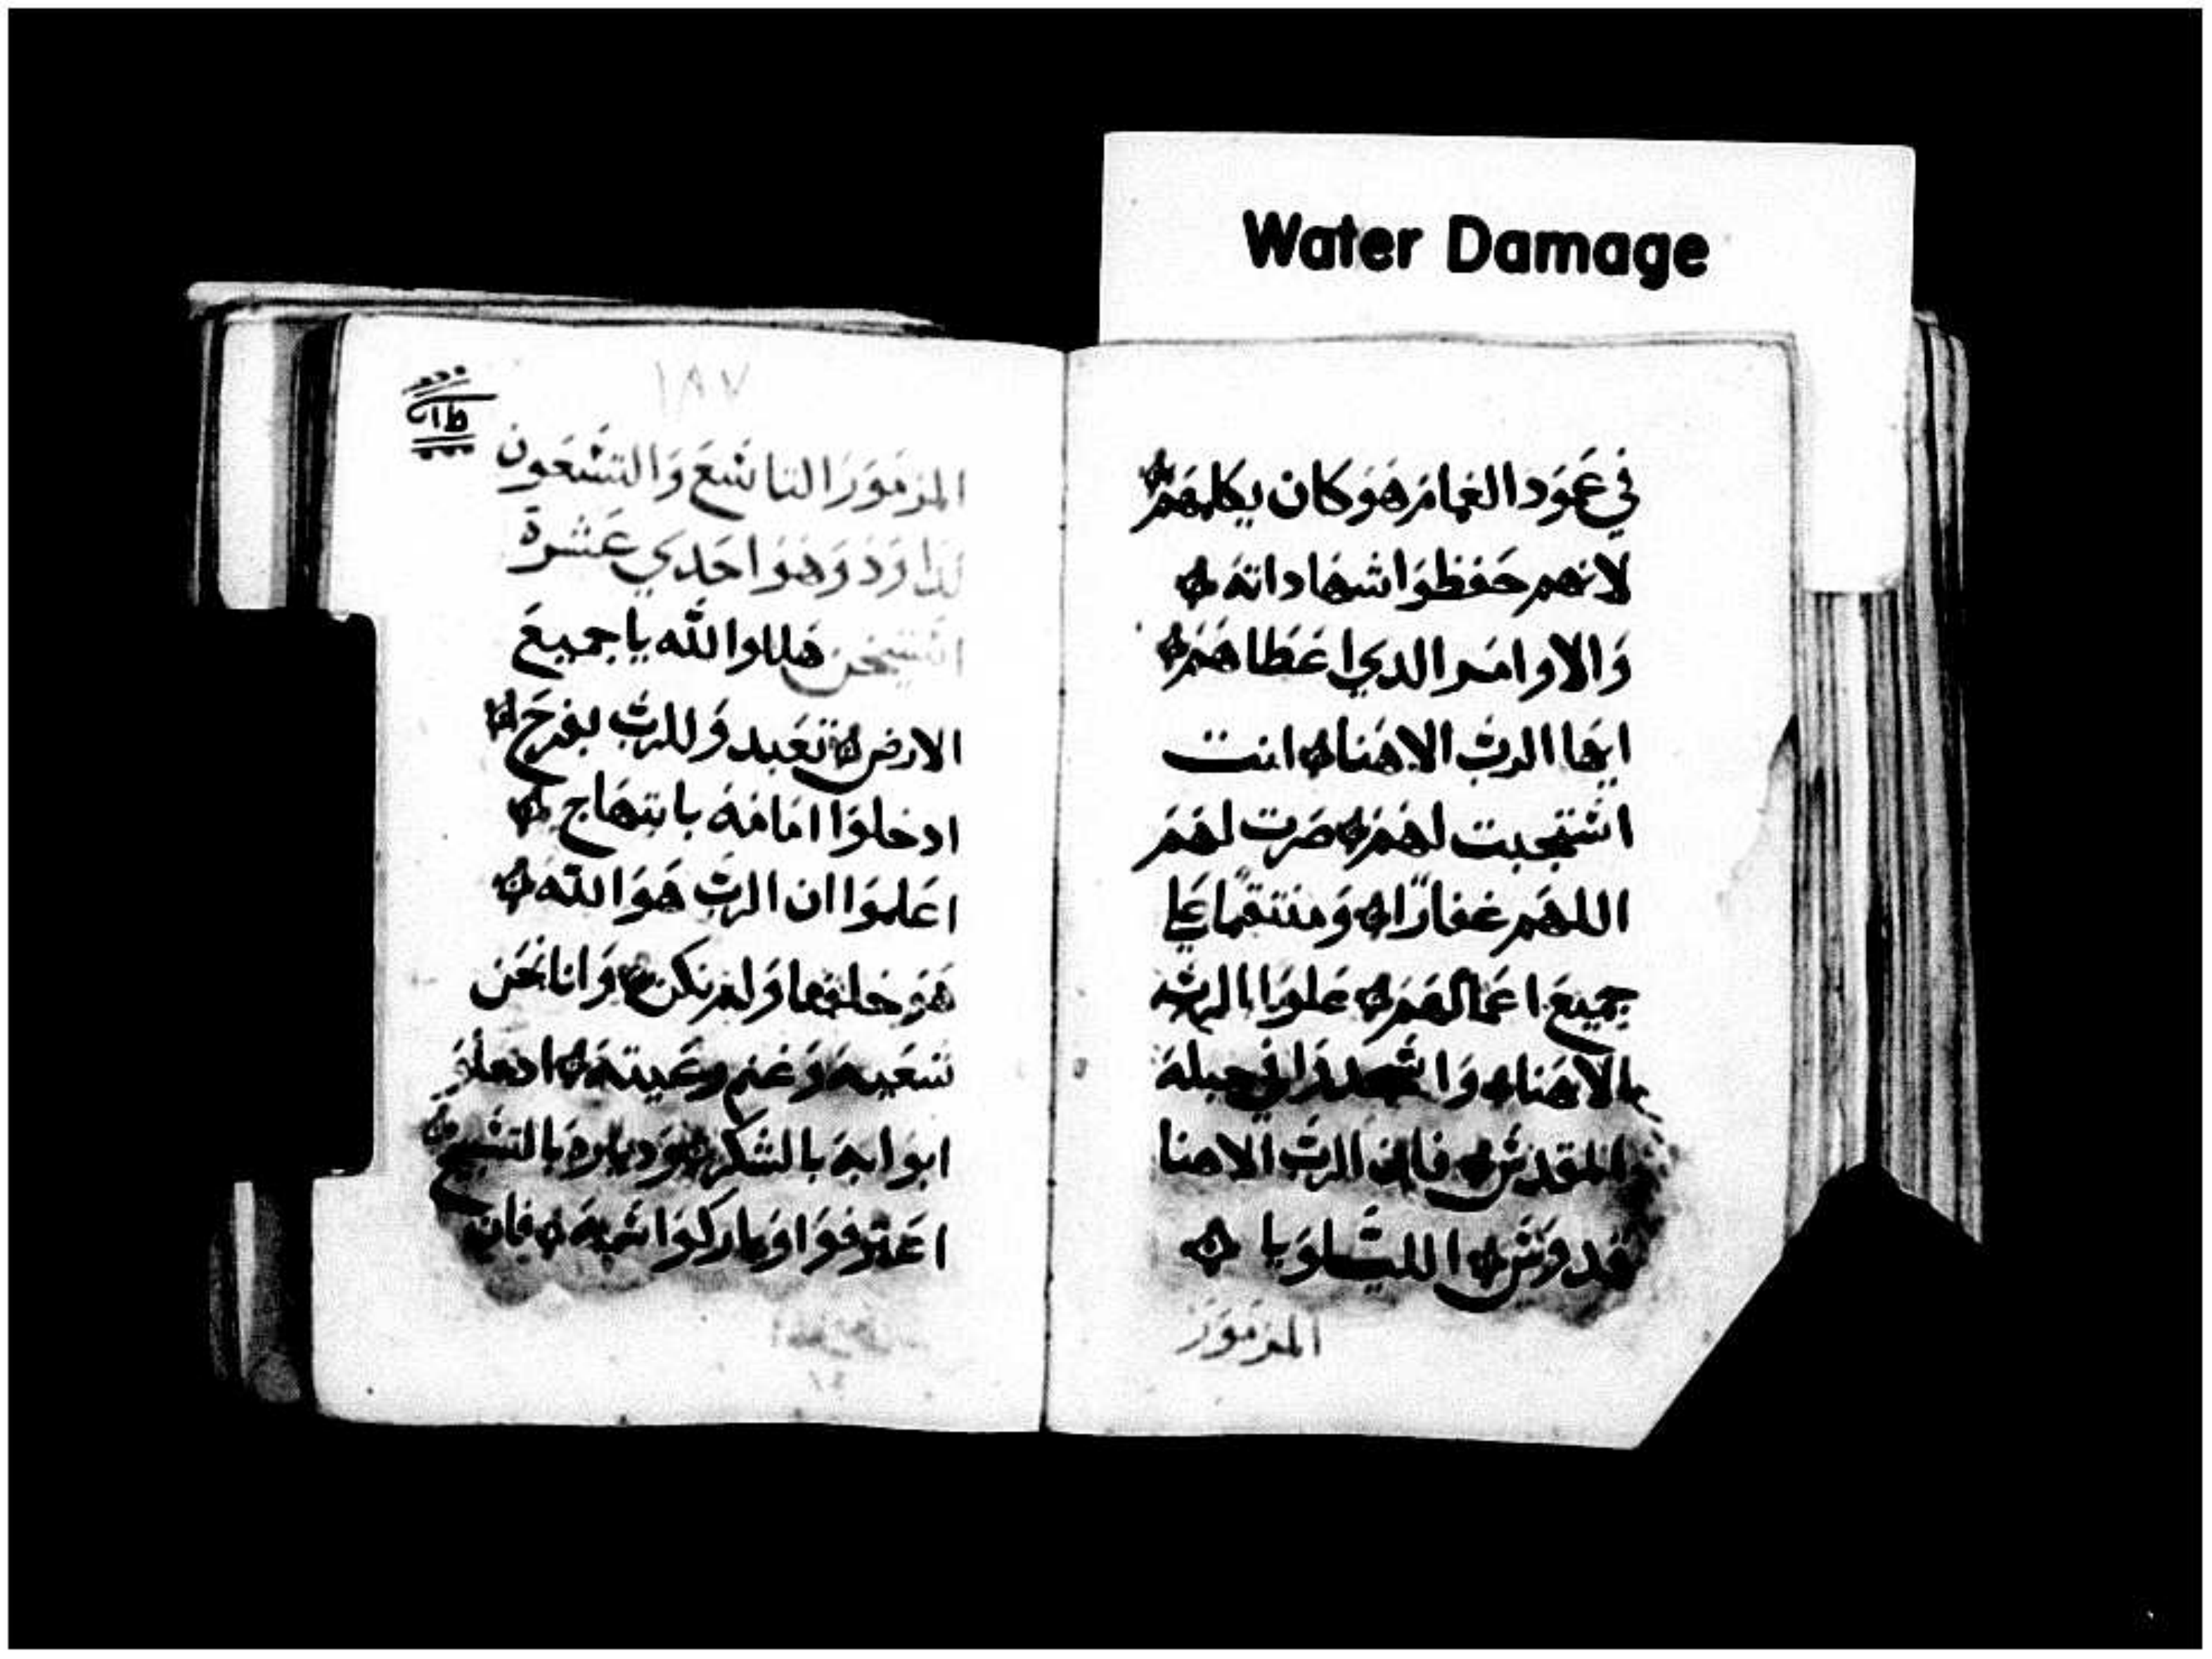 Water Damage
في عمود الغمام هو كان يكلمهم
لانهم حفظوا شهاداته
والاوامر الدي اعطاهم
ايها الرب الاهنا انت
استجبت لهم صرت لهم
اللهم غفارا ومنتقما علي
جميع اعمالهم علوا الرب
الاهنا واسجدوا في جبله
المقدس فان الرب الاهنا
قدوس الليلويا
المزمور
١٨٧
المزمور التاسع والتسعون
لداوود وهو احدي عشرة
هللوا الله يا جميع
الارض تعبدو للرب بفرح
ادخلوا امامه بابتهاج
اعلموا ان الرب هو الله
هو خلقنا ولم نكن وانا نحن
شعبه وغنم رعيته ادخلو
ابوابه بالشكر ودياره بالتسبيح
اعترفوا وباركوا اسمه فان